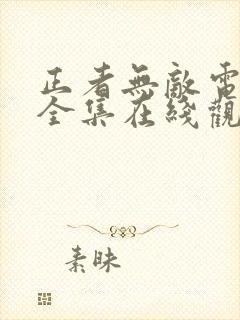 正者無敵電
全集在綫觀
素昧